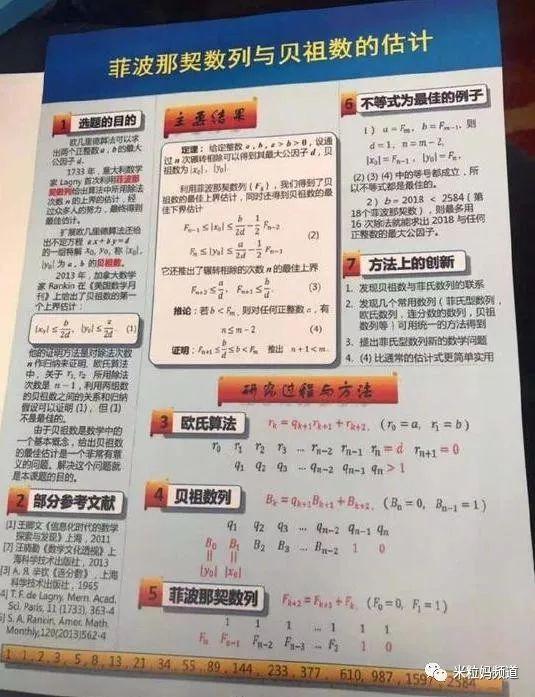 菲波那契数列与贝祖数的估计
1 选题的目的
欧几里德算法可以求
出两个正整数 a, b 的最大
公因子 d.
1733 年, 意大利数学
家 Lagny 首次利用菲波那
契数列给出算法中所用除法
次数 n 的上界的估计, 经
过众多人的努力, 最终得到
最佳估计.
扩展欧几里德算法还给
出不定方程 ax+by=d
的一组特解 x₀, y₀, 称 |x₀|,
|y₀| 为 a, b 的贝祖数.
2013 年, 加拿大数学
家 Rankin 在《美国数学月
刊》上给出了贝祖数的第一
个上界估计:
|x₀| ≤ b/2d, |y₀| ≤ a/2d. (1)
他的证明方法是对除法次数
n 作归纳来证明. 欧氏算法
中, 关于 r₁, r₂ 所用除法
次数是 n−1, 利用两组数
的贝祖数之间的关系和归纳
假设可以证明 (1), 但 (1)
不是最佳的.
由于贝祖数是数学中的
一个基本概念, 给出贝祖数
的最佳估计是一个非常有意
义的问题. 解决这个问题就
是本课题的目的.
2 部分参考文献
[1] 王卿文《信息化时代的数学
探索与发现》上海, 2011
汪晓勤《数学文化透视》上
海科学技术出版社, 2013
[3] A. Я. 辛钦《连分数》, 上海
科学技术出版社, 1965
4] T. F. de Lagny. Mem. Acad.
Sci. Paris, 11 (1733), 363-4
S. A. Rankin, Amer. Math.
Monthly, 120(2013)562-4
主要结果
定理: 给定整数 a, b, a > b > 0, 设通
过 n 次辗转相除可以得到其最大公因子 d, 贝
祖数为 |x₀|, |y₀|.
利用菲波那契数列 {Fₖ}, 我们得到了贝
祖数的最佳上界估计, 同时还得到贝祖数的最
佳下界估计
Fₙ₋₁ ≤ |x₀| ≤ b/2d − 1/2 Fₙ₋₂
(2)
Fₙ ≤ |y₀| ≤ a/2d − 1/2 Fₙ₋₁
它还推出了辗转相除的次数 n 的最佳上界
Fₙ₊₂ ≤ a/d, Fₙ₊₁ ≤ b/d. (3)
推论: 若 b < Fₘ, 则对任何正整数 a, 有
n ≤ m − 2 (4)
证明: Fₙ₊₁ ≤ b/d ≤ b < Fₘ 推出 n + 1 < m.
6 不等式为最佳的例子
1) a = Fₘ, b = Fₘ₋₁, 则
d = 1, n = m − 2,
|x₀| = Fₙ₋₁, |y₀| = Fₙ.
(2) (3) (4) 中的等号都成立, 所
以不等式都是最佳的.
2) b = 2018 < 2584 (第
18个菲波那契数), 则最多用
16 次除法就能求出 2018 与任何
正整数的最大公因子.
7 方法上的创新
1. 发现贝祖数与菲氏数列的联系
2. 发现几个常用数列 (菲氏型数列,
欧氏数列, 连分数的数列, 贝祖
数列等) 可用统一的方法得到
3. 提出菲氏型数列新的数学问题
4. (4) 比通常的估计式更简单实用
研究过程与方法
3 欧氏算法 rₖ = qₖ₊₁rₖ₊₁ + rₖ₊₂, (r₀ = a, r₁ = b)
r₀ r₁ r₂ r₃ ... rₙ₋₂ rₙ₋₁ rₙ = d rₙ₊₁ = 0
q₁ q₂ q₃ ... qₙ₋₂ qₙ₋₁ qₙ > 1
4 贝祖数列 Bₖ = qₖ₊₁Bₖ₊₁ + Bₖ₊₂, (Bₙ = 0, Bₙ₋₁ = 1)
q₁ q₂ q₃ ... qₙ₋₂ qₙ₋₁ qₙ
B₀ B₁ B₂ B₃ ... Bₙ₋₂ 1 0
|| ||
|y₀| |x₀|
5 菲波那契数列 Fₖ₊₂ = Fₖ₊₁ + Fₖ, (F₀ = 0, F₁ = 1)
1 1 1 ... 1 1 1
Fₙ Fₙ₋₁ Fₙ₋₂ Fₙ₋₃ ... F₂ 1 0
1, 1, 2, 3, 5, 8, 13, 21, 34, 55, 89, 144, 233, 377, 610, 987, 1597, 2584
米粒妈频道